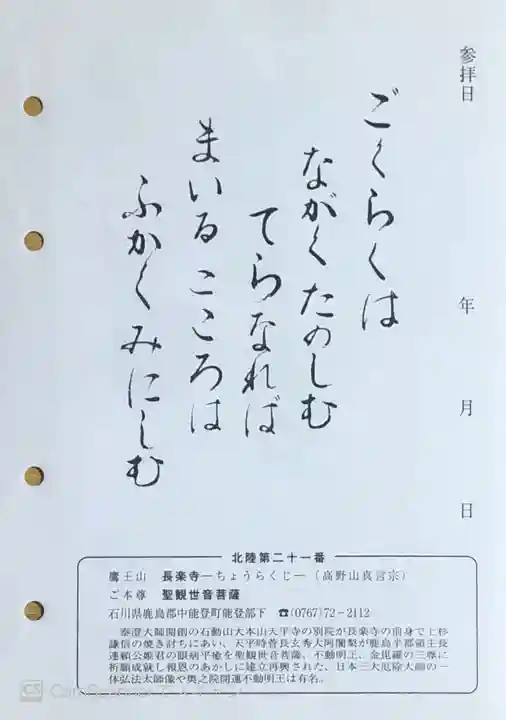 参拝日 年 月 日
ごくらくは
ながくたのしむ
てらなれば
まいるこころは
ふかくみにしむ
北陸第二十一番
鷹王山 長楽寺―ちょうらくじ―(高野山真言宗)
ご本尊 聖観世音菩薩
石川県鹿島郡中能登町能登部下 ☎(0767)72-2112
泰澄大師開創の石動山大本山天平寺の別院が長楽寺の前身で上杉
謙信の焼き討ちにあい、天平時曽長玄秀大阿闍梨が鹿島半郡領主長
連頼公姫君の眼病平癒を聖観世音菩薩、不動明王、金毘羅の三尊に
祈願成就し報恩のあかしに建立再興された、日本三大厄除大師の一
体弘法大師像や奥之院開運不動明王は有名。
CS CamScanner